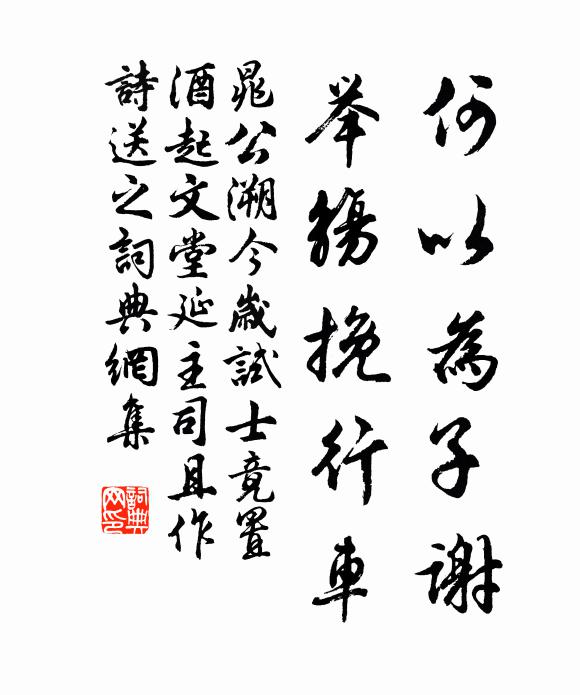 何以為子謝
举觴挽行車
晁公溯今歲試士竟置
酒起文堂延主司且作
詩送之詞典網集
詞典
网印